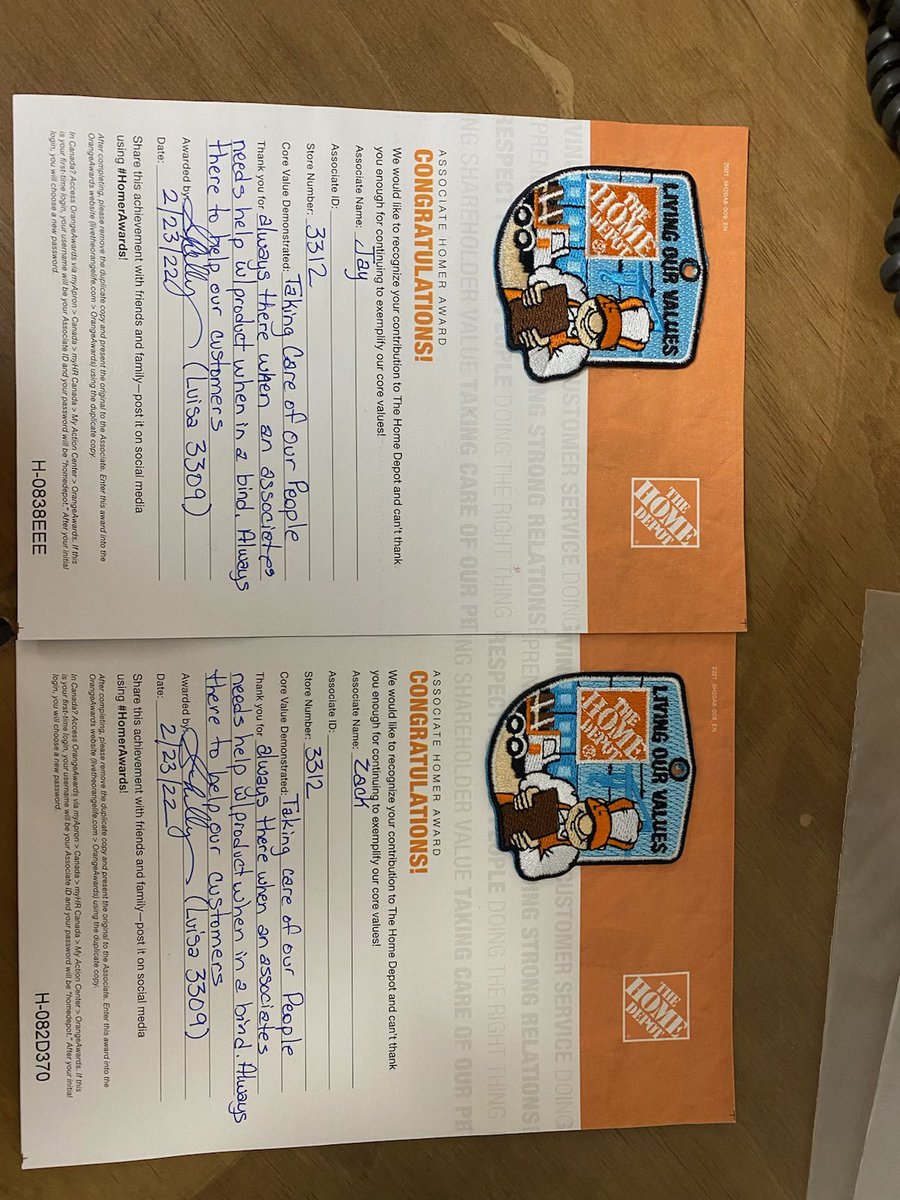 2021_SH20A8-009_EN
LIVING OUR VALUES
THE
HOME
DEPOT
THE
HOME
DEPOT
ASSOCIATE HOMER AWARD
CONGRATULATIONS!
We would like to recognize your contribution to The Home Depot and can't thank
you enough for continuing to exemplify our core values!
Associate Name: Jay
Associate ID:
Store Number: 3312
Core Value Demonstrated: Taking Care of Our People
Thank you for always there when an associates
needs help w/product when in a bind. Always
there to help our customers
Awarded by: (Luisa 3309)
Date: 2/23/22
Share this achievement with friends and family—post it on social media
using #HomerAwards!
After completing, please remove the duplicate copy and present the original to the Associate. Enter this award into the
OrangeAwards website (livetheorangelife.com > OrangeAwards) using the duplicate copy.
In Canada? Access OrangeAwards via myApron > Canada > myHR Canada > My Action Center > OrangeAwards. If this
is your first-time login, your username will be your Associate ID and your password will be "homedepot." After your initial
login, you will choose a new password.
H-0838EEE
2021_SH20A8-009_EN
LIVING OUR VALUES
THE
HOME
DEPOT
THE
HOME
DEPOT
ASSOCIATE HOMER AWARD
CONGRATULATIONS!
We would like to recognize your contribution to The Home Depot and can't thank
you enough for continuing to exemplify our core values!
Associate Name: Zach
Associate ID:
Store Number: 3312
Core Value Demonstrated: Taking care of our People
Thank you for always there when an associates
needs help w/product when in a bind. Always
there to help our customers
Awarded by: (Luisa 3309)
Date: 2/23/22
Share this achievement with friends and family—post it on social media
using #HomerAwards!
After completing, please remove the duplicate copy and present the original to the Associate. Enter this award into the
OrangeAwards website (livetheorangelife.com > OrangeAwards) using the duplicate copy.
In Canada? Access OrangeAwards via myApron > Canada > myHR Canada > My Action Center > OrangeAwards. If this
is your first-time login, your username will be your Associate ID and your password will be "homedepot." After your initial
login, you will choose a new password.
H-082D370